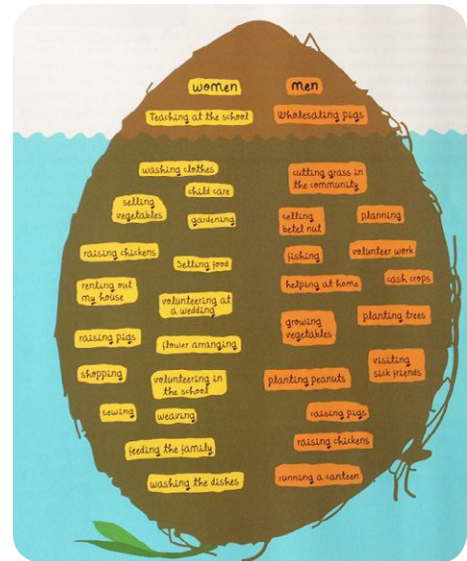 women
men
Teaching at the school
Wholesaling pigs
washing clothes
child care
selling
vegetables
gardening
raising chickens
Selling food
renting out
my house
volunteering at
a wedding
raising pigs
flower arranging
shopping
volunteering in
the school
sewing
weaving
feeding the family
washing the dishes
cutting grass in
the community
selling
betel nut
planning
fishing
volunteer work
helping at home
cash crops
growing
vegetables
planting trees
visiting
sick friends
planting peanuts
raising pigs
raising chickens
running a canteen